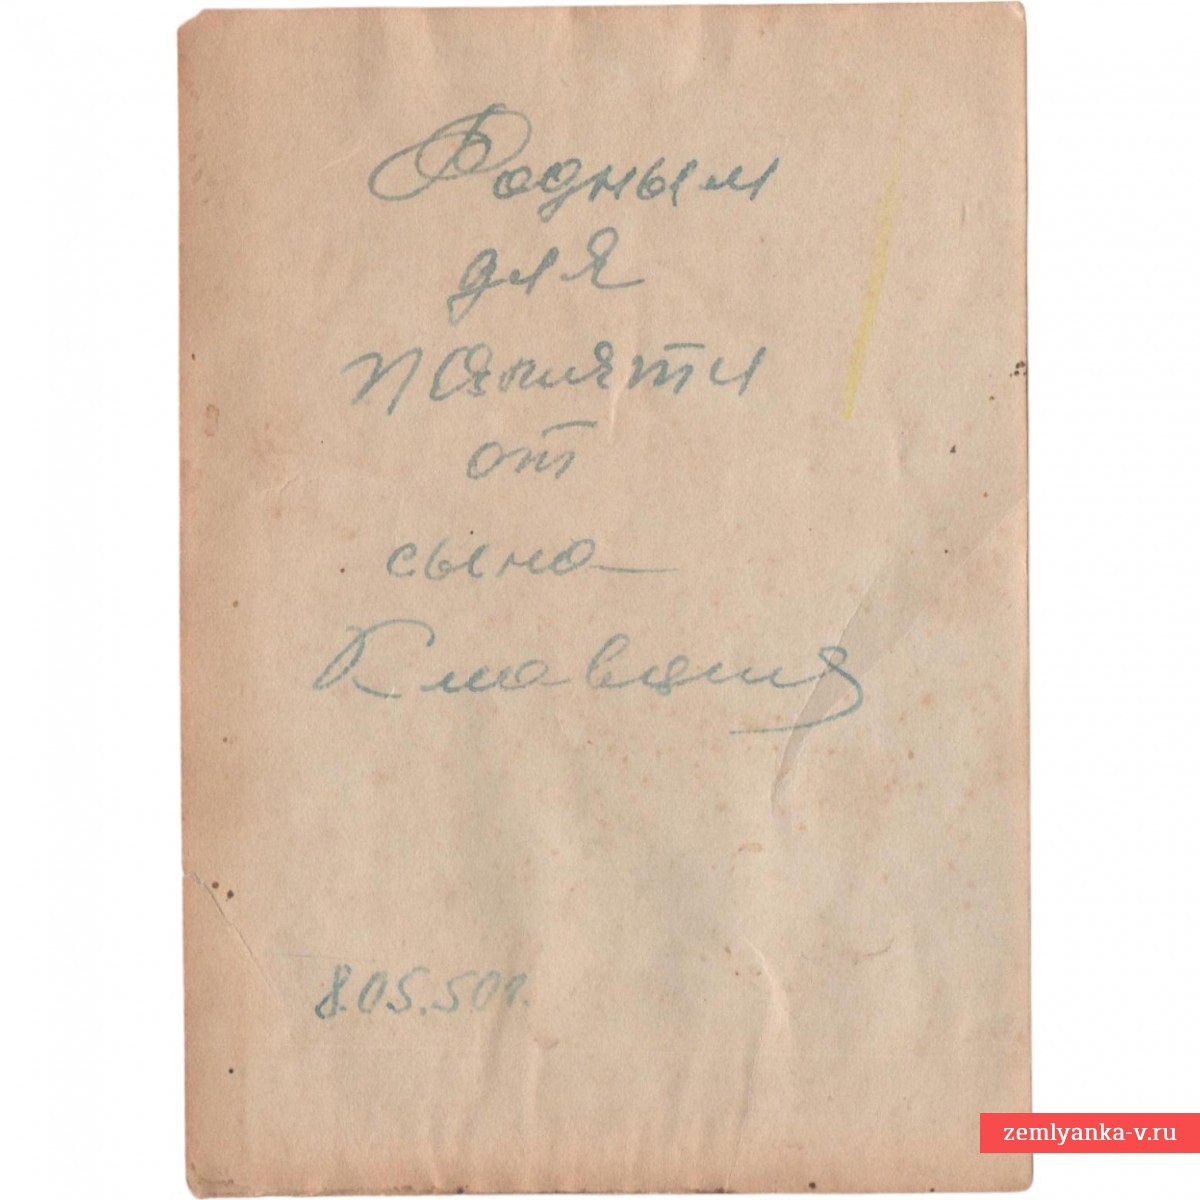 Родным
для
памяти
от
сына
8.05.50г.
zemlyanka-v.ru